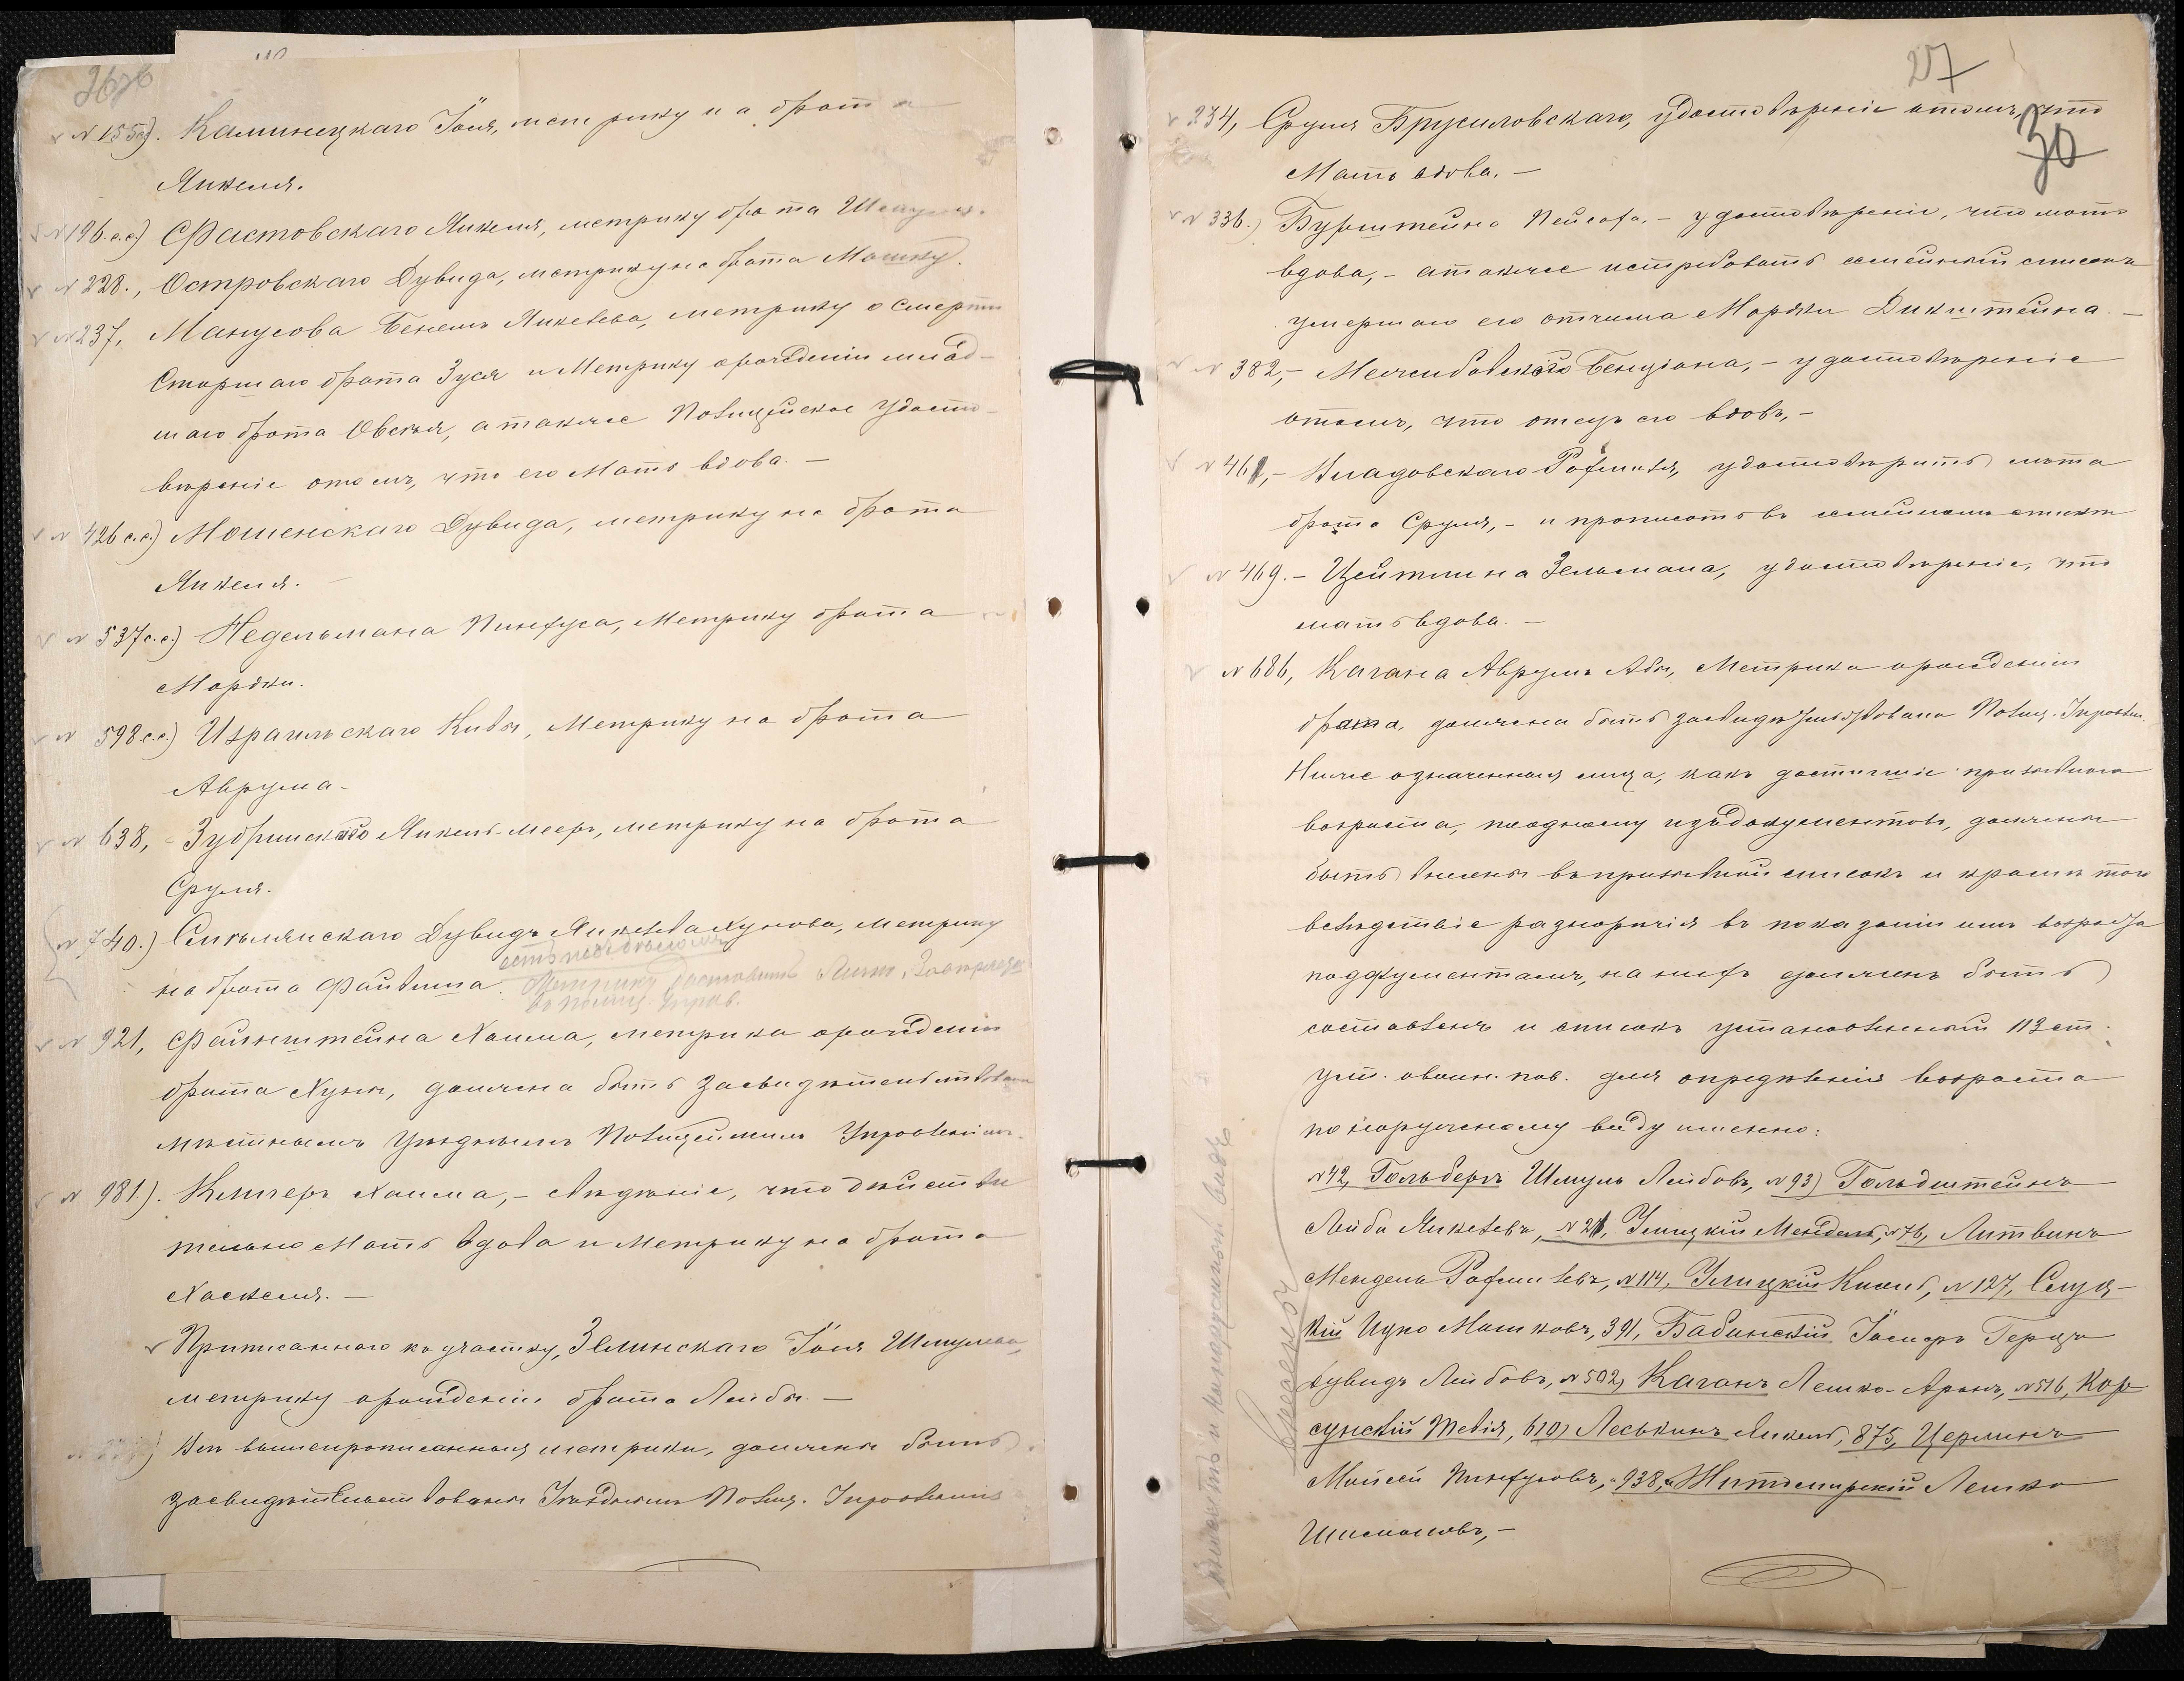 № 155 Каминецкаго Іоля, метрику на брата
Янкеля.
№ 196 с.с.) Фастовскаго Янкеля, метрику брата
№ 228., Островскаго Дувида, метрику на брата Мошку.
№ 237, Манусова Бенемъ Янкелева, метрику о смерти
старшаго брата Зуся и Метрику о рожденіи млад-
шаго брата Овсея, а также Полицейское удосто-
вѣреніе о томъ, что его Мать вдова. –
№ 426 с.с.) Мошенскаго Дувида, метрику на брата
Янкеля.
№ 537 с.с.) Недельмана Пинхуса, Метрику брата
Мордки.
№ 598 с.с.) Израильскаго Кивы, Метрику на брата
Аврума.
№ 638, Зубринскаго Янкель-Меера, метрику на брата
Сруля.
№ 740.) Смелянскаго Дувидъ Янкелева Хунова, метрику
на брата Файвиша.
Метрику доставитъ
въ полиц. Управ.
№ 921, Файнштейна Хаима, метрика о рожденіи
брата Хуны, должна быть засвидѣтельствована
мѣстнымъ Уѣзднымъ Полицейскимъ Управленіемъ.
№ 981). Клигеръ Хаима, – свѣдѣніе, что дѣйстви
тельно Мать вдова и Метрику на брата
Хаскеля. –
Приписаннаго къ участку, Зелинскаго Іоля Шмулева,
метрику о рожденіи брата Лейбы. –
Всѣ вышепрописанныя метрики, должны быть
засвидѣтельствованы Уѣзднымъ Полиц. Управленіе
27
30
234, Сруля Брусиловскаго, удостовѣреніе о томъ, что
Мать вдова. –
№ 336.) Бурштейна Пейсаха, – удостовѣреніе, что мать
вдова, – а также истребовать семейный списокъ
умершаго его отчима Мордки Дикштейна. –
№ 382, – Межибовскаго Бенціона, – удостовѣреніе
о томъ, что отецъ его вдовъ, –
№ 461, – Владовскаго Рафаила, удостовѣрить лѣта
брата Сруля, – и прописать въ семейномъ спискѣ
№ 469. – Цейтлина Зельмана, удостовѣреніе, что
мать вдова. –
№ 686, Кагана Аврумъ Абы, Метрика о рожденіи
брата, должна быть засвидѣтельствована Полиц. Управлен.
Ниже означенныя лица, какъ достигшіе призывнаго
возраста, по одному изъ документовъ, должны
быть внесены въ призывной списокъ и кромѣ того
вслѣдствіе разнорѣчія въ показаніи имъ возраста
по документамъ, на нихъ долженъ быть
составленъ и списокъ установленный 113 ст.
уст. о воин. пов. для опредѣленія возраста
по наружному виду именно:
№ 42, Гольберъ Шмуль Лейбовъ, № 93) Гольдштейнъ
Лейба Янкелевъ, № 21, Улицкій Мендель, № 76, Литвинъ
Мендель Рафаилевъ, № 114, Улицкій Кисиль, № 127, Слуц-
кій Ицко Мошковъ, 391, Бабинскій Іосифъ Герцъ
Дувидъ Лейбовъ, № 502, Каганъ Лейко-Аронъ, № 516, Кор
сунскій Тевія, 610, Леськинъ Янкель, 875, Церлинъ
Мойсей Пинхусовъ, 938, Житомирскій Лейко
Шимоновъ, –